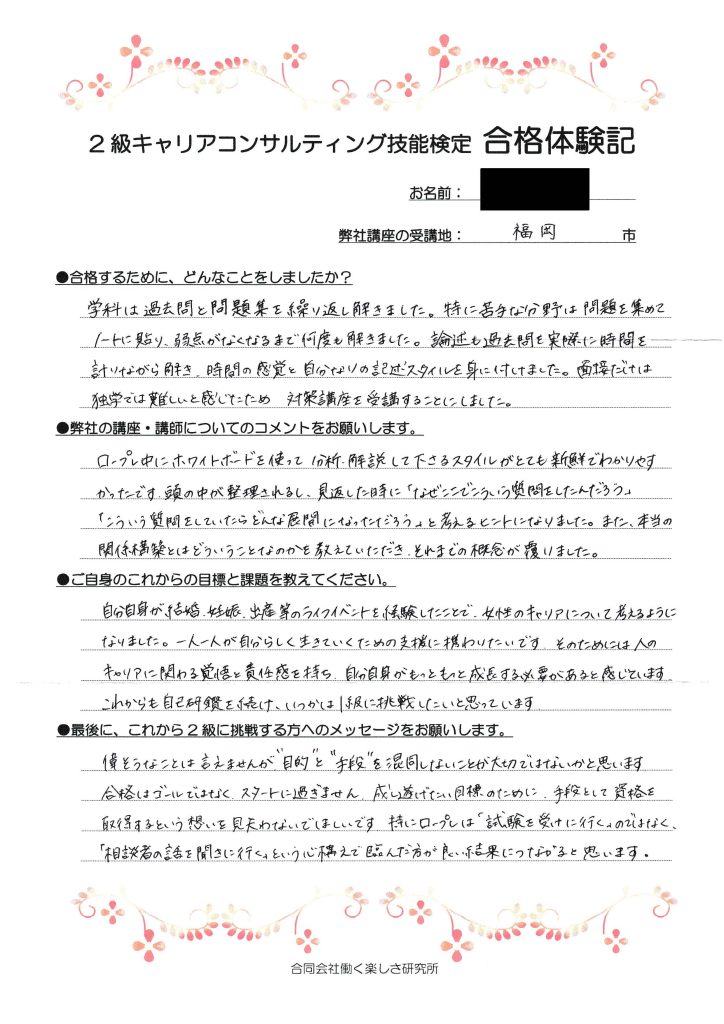 2級キャリアコンサルティング技能検定 合格体験記
お名前：
弊社講座の受講地： 福岡 市
●合格するために、どんなことをしましたか？
学科は過去問と問題集を繰り返し解きました。特に苦手な分野は問題を集めて
ノートに貼り、弱点がなくなるまで何度も解きました。論述も過去問を実際に時間を
計りながら解き、時間の感覚と自分なりの記述スタイルを身に付けました。面接だけは
独学では難しいと感じたため 対策講座を受講することにしました。
●弊社の講座・講師についてのコメントをお願いします。
ロープレ中にホワイトボードを使って分析・解説して下さるスタイルがとても新鮮でわかりやす
かったです。頭の中が整理されるし、見返した時に「なぜここでこういう質問をしたんだろう」
「こういう質問をしていたらどんな展開になっただろう」と考えるヒントになりました。また、本当の
関係構築とはどういうことなのかを教えていただき、それまでの概念が覆りました。
●ご自身のこれからの目標と課題を教えてください。
自分自身が結婚、妊娠、出産等のライフイベントを経験したことで、女性のキャリアについて考えるように
なりました。一人一人が自分らしく生きていくための支援に携わりたいです。そのためには人の
キャリアに関わる覚悟と責任感を持ち、自分自身がもっともっと成長する必要があると感じています。
これからも自己研鑽を続け、いつかは1級に挑戦したいと思っています。
●最後に、これから2級に挑戦する方へのメッセージをお願いします。
偉そうなことは言えませんが"目的"と"手段"を混同しないことが大切ではないかと思います。
合格はゴールではなく、スタートに過ぎません。成し遂げたい目標のために、手段として資格を
取得するという想いを見失わないでほしいです。特にロープレは「試験を受けに行く」のではなく、
「相談者の話を聞きに行く」という心構えで臨んだ方が良い結果につながると思います。
合同会社働く楽しさ研究所